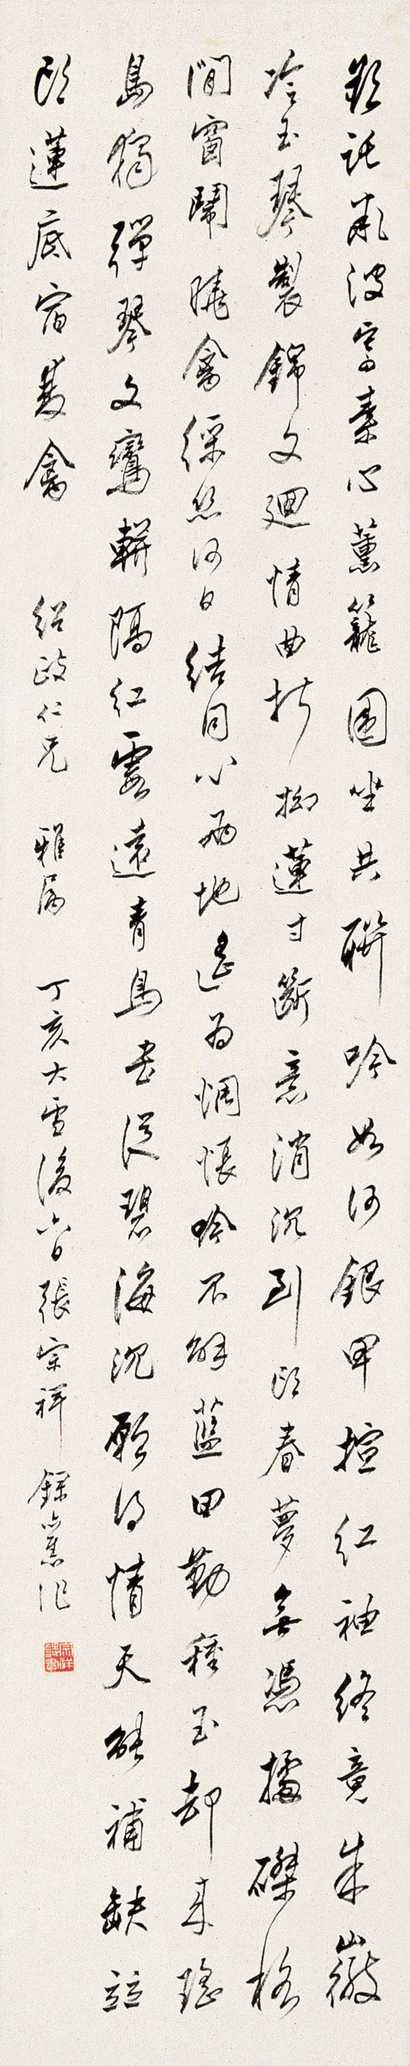 欲託微波寄素心薰籠圍坐共聯吟如何銀甲搊紅袖終竟朱徽
冷玉琴製錦文迴情曲折抛蓮寸斷意消沉到頭春夢無憑據磔格
閒窗鬧曉禽綵絲何日結同心兩地遙為惆悵吟不解藍田勤種玉却来瑤
島獨彈琴文鸞輧隔紅雲遠青鳥書從碧海沉願得情天能補缺竝
頭蓮底宿雙禽
紹政仁兄 雅屬 丁亥大雪後六日張宗祥 錄舊作